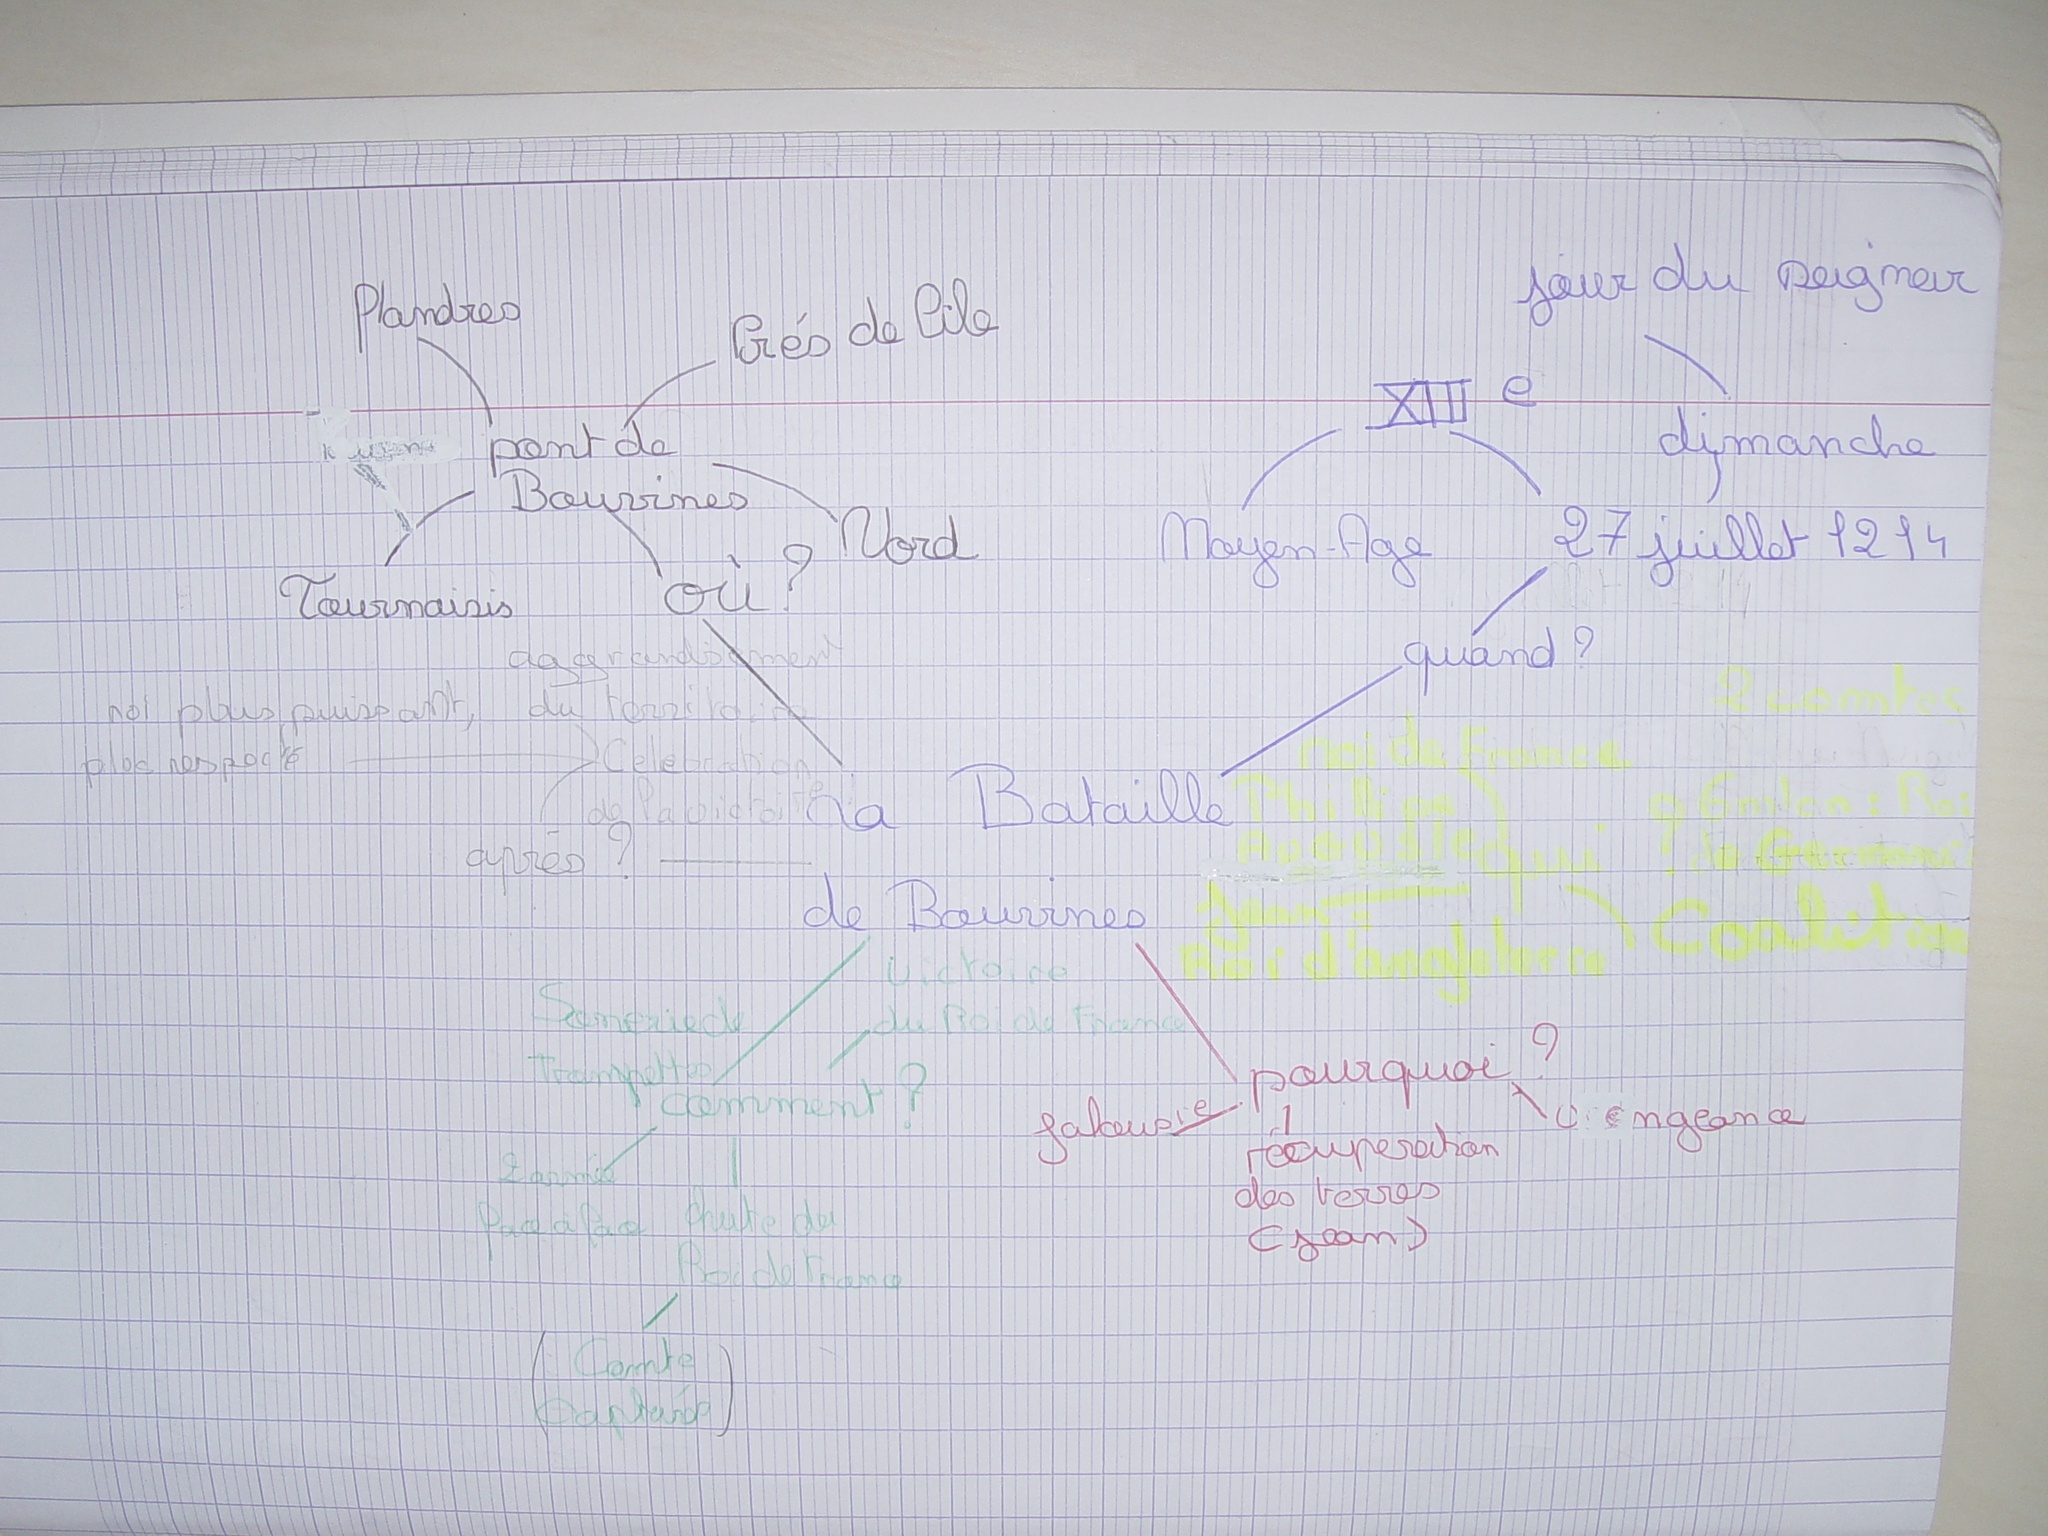 jour du seigneur
Flandres
Près de Lile
XIII e
dimanche
pont de
Bouvines
Nord
Moyen-Age
27 juillet 1214
Tournaisis
où ?
quand ?
aggrandissement
du territoire
roi plus puissant,
plus respecté
Célébration
de la victoire
après ?
La Bataille
de Bouvines
2 comtes
roi de France
Phillipe
Auguste
qui ?
Otton : Roi
de Germanie
Jean :
Roi d'angleterre
Coalition
Victoire
du Roi de France
Sonnerie de
Trompettes
comment ?
2 armée
face à face
chute du
Roi de France
(Comte
Capturés)
pourquoi ?
jalousie
vengeance
récuperation
des terres
(jean)